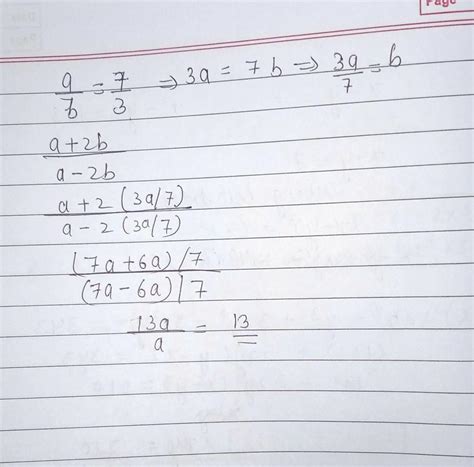 Page
a/b = 7/3 ⇒ 3a = 7b ⇒ 3a/7 = b
a+2b
a-2b
a+2(3a/7)
a-2(3a/7)
(7a+6a)/7
(7a-6a)/7
13a/a = 13